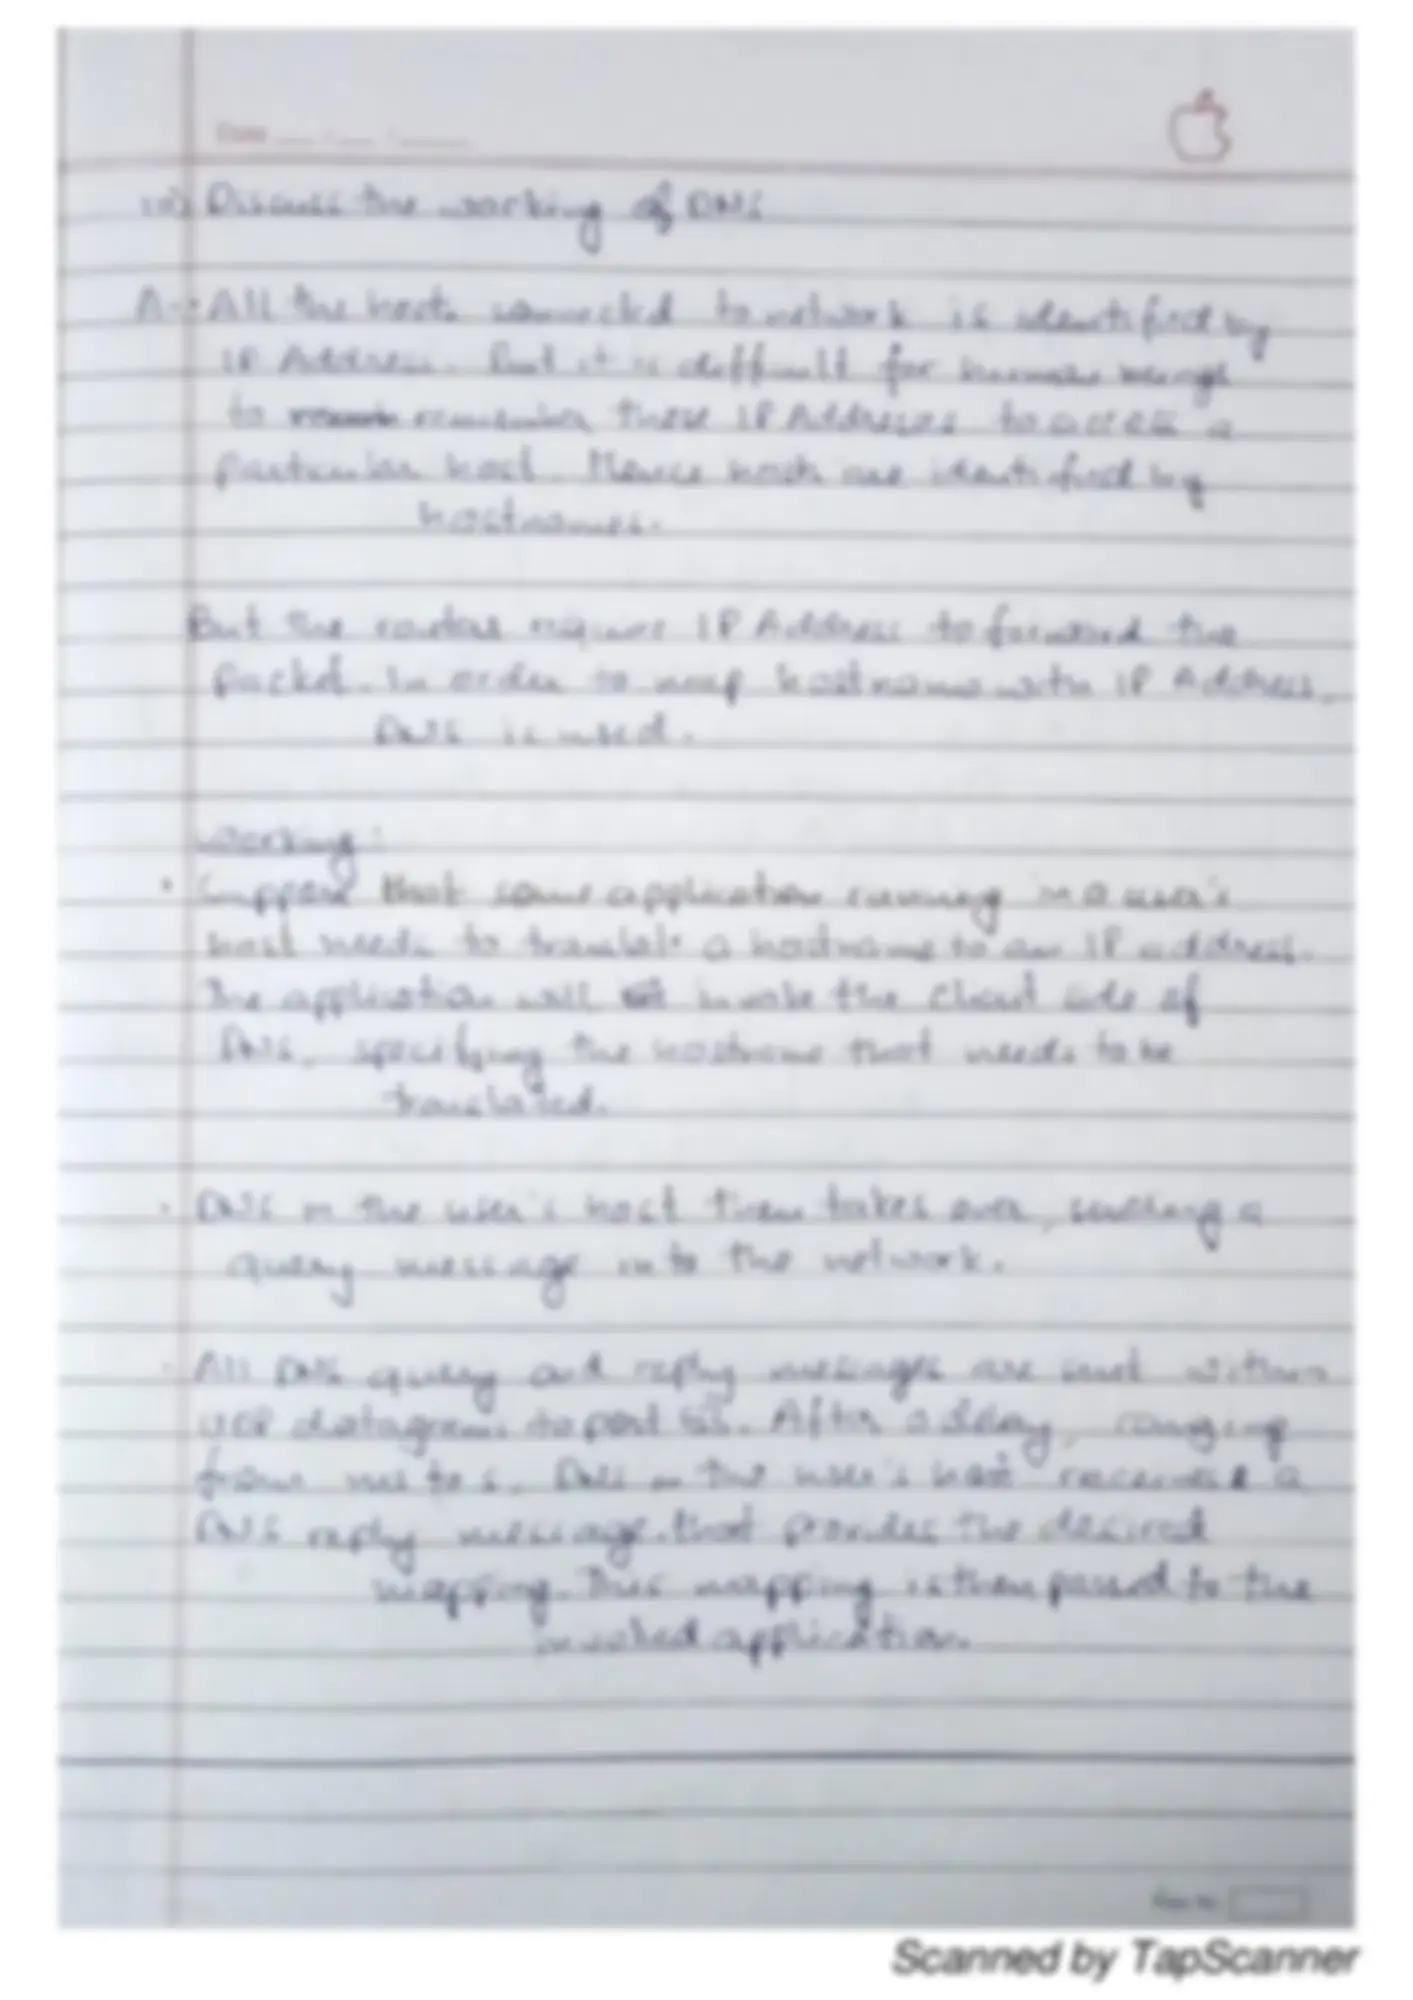 Date
Discuss the working of DNS
A- All the hosts connected to network is identified by
IP Address. But it is difficult for human beings
to remember these IP Addresses to access a
particular host. Hence hosts are identified by
hostnames.
But the routers require IP Address to forward the
packet. In order to map hostname with IP Address,
DNS is used.
Working:
• Suppose that some application running in a user's
host needs to translate a hostname to an IP address.
The application will invoke the client side of
DNS, specifying the hostname that needs to be
translated.
• DNS in the user's host then takes over, sending a
query message into the network.
• All DNS query and reply messages are sent within
UDP datagrams to port 53. After a delay, ranging
from ms to s, DNS in the user's host receives a
DNS reply message that provides the desired
mapping. This mapping is then passed to the
invoked application.
Page No.
Scanned by TapScanner